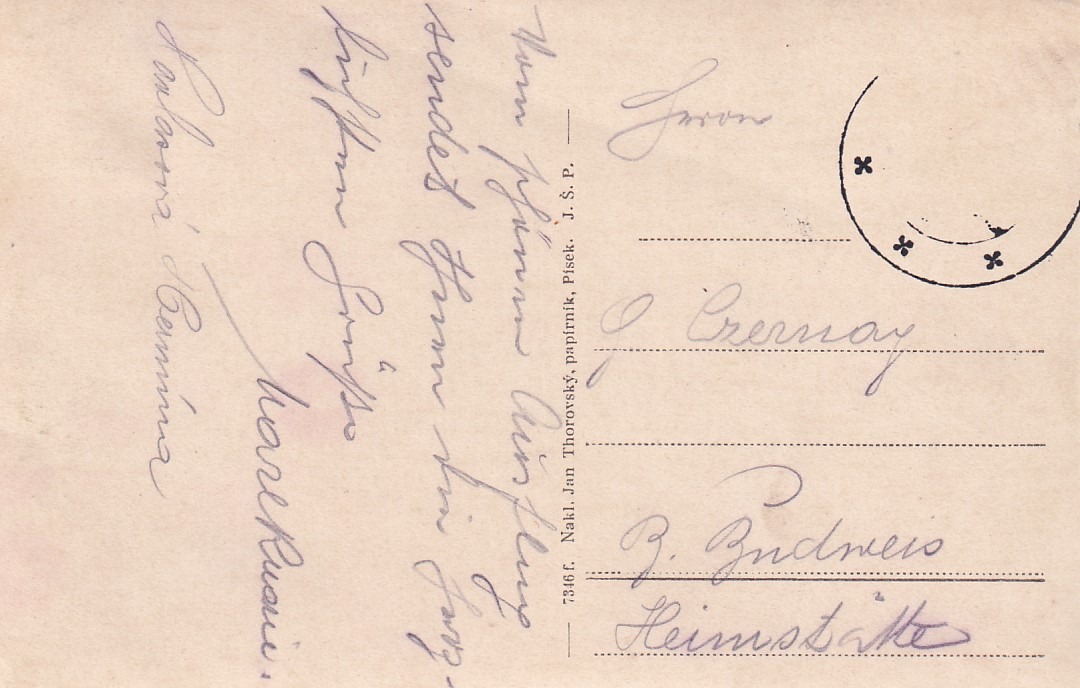 Vom schönen Ausflug
sendet Ihnen die herz-
lichsten Grüße
Marek Marie.
Hermína
7346 f. Nakl. Jan Thorovský, papírník, Písek. J. Š. P.
Herrn
J Czernay
B. Budweis
Heimstätte